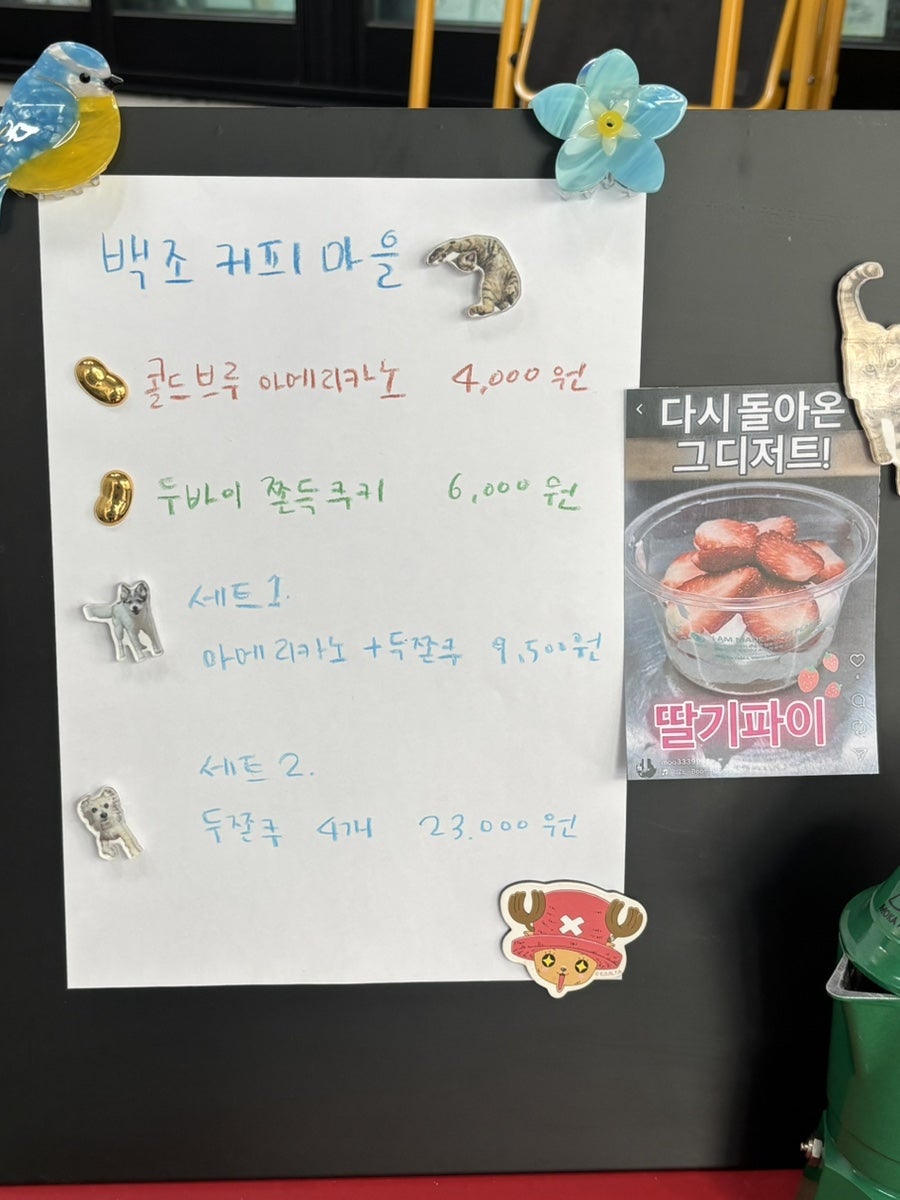 백조 커피 마을
콜드브루 아메리카노 4,000원
두바이 쫀득쿠키 6,000원
세트 1.
아메리카노 + 두쫀쿠 9,500원
세트 2.
두쫀쿠 4개 23.000원
다시 돌아온
그 디저트!
딸기파이